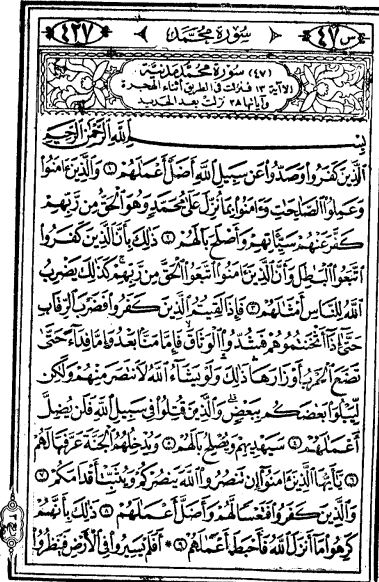 س ٤٧ سورة محمد ٤٢٧
(٤٧) سورة محمد مدنية
إلا آية ١٣ فنزلت في الطريق أثناء الهجرة
وآياتها ٣٨ نزلت بعد الحديد
بسم الله الرحمن الرحيم
ٱلَّذِينَ كَفَرُوا۟ وَصَدُّوا۟ عَن سَبِيلِ ٱللَّهِ أَضَلَّ أَعْمَـٰلَهُمْ ١ وَٱلَّذِينَ ءَامَنُوا۟
وَعَمِلُوا۟ ٱلصَّـٰلِحَـٰتِ وَءَامَنُوا۟ بِمَا نُزِّلَ عَلَىٰ مُحَمَّدٍ وَهُوَ ٱلْحَقُّ مِن رَّبِّهِمْ
كَفَّرَ عَنْهُمْ سَيِّـَٔاتِهِمْ وَأَصْلَحَ بَالَهُمْ ٢ ذَٰلِكَ بِأَنَّ ٱلَّذِينَ كَفَرُوا۟
ٱتَّبَعُوا۟ ٱلْبَـٰطِلَ وَأَنَّ ٱلَّذِينَ ءَامَنُوا۟ ٱتَّبَعُوا۟ ٱلْحَقَّ مِن رَّبِّهِمْ كَذَٰلِكَ يَضْرِبُ
ٱللَّهُ لِلنَّاسِ أَمْثَـٰلَهُمْ ٣ فَإِذَا لَقِيتُمُ ٱلَّذِينَ كَفَرُوا۟ فَضَرْبَ ٱلرِّقَابِ
حَتَّىٰٓ إِذَآ أَثْخَنتُمُوهُمْ فَشُدُّوا۟ ٱلْوَثَاقَ فَإِمَّا مَنًّۢا بَعْدُ وَإِمَّا فِدَآءً حَتَّىٰ
تَضَعَ ٱلْحَرْبُ أَوْزَارَهَا ذَٰلِكَ وَلَوْ يَشَآءُ ٱللَّهُ لَٱنتَصَرَ مِنْهُمْ وَلَـٰكِن
لِّيَبْلُوَا۟ بَعْضَكُم بِبَعْضٍ وَٱلَّذِينَ قُتِلُوا۟ فِى سَبِيلِ ٱللَّهِ فَلَن يُضِلَّ
أَعْمَـٰلَهُمْ ٤ سَيَهْدِيهِمْ وَيُصْلِحُ بَالَهُمْ ٥ وَيُدْخِلُهُمُ ٱلْجَنَّةَ عَرَّفَهَا لَهُمْ
٦ يَـٰٓأَيُّهَا ٱلَّذِينَ ءَامَنُوٓا۟ إِن تَنصُرُوا۟ ٱللَّهَ يَنصُرْكُمْ وَيُثَبِّتْ أَقْدَامَكُمْ ٧
وَٱلَّذِينَ كَفَرُوا۟ فَتَعْسًا لَّهُمْ وَأَضَلَّ أَعْمَـٰلَهُمْ ٨ ذَٰلِكَ بِأَنَّهُمْ
كَرِهُوا۟ مَآ أَنزَلَ ٱللَّهُ فَأَحْبَطَ أَعْمَـٰلَهُمْ ٩ * أَفَلَمْ يَسِيرُوا۟ فِى ٱلْأَرْضِ فَيَنظُرُوا۟